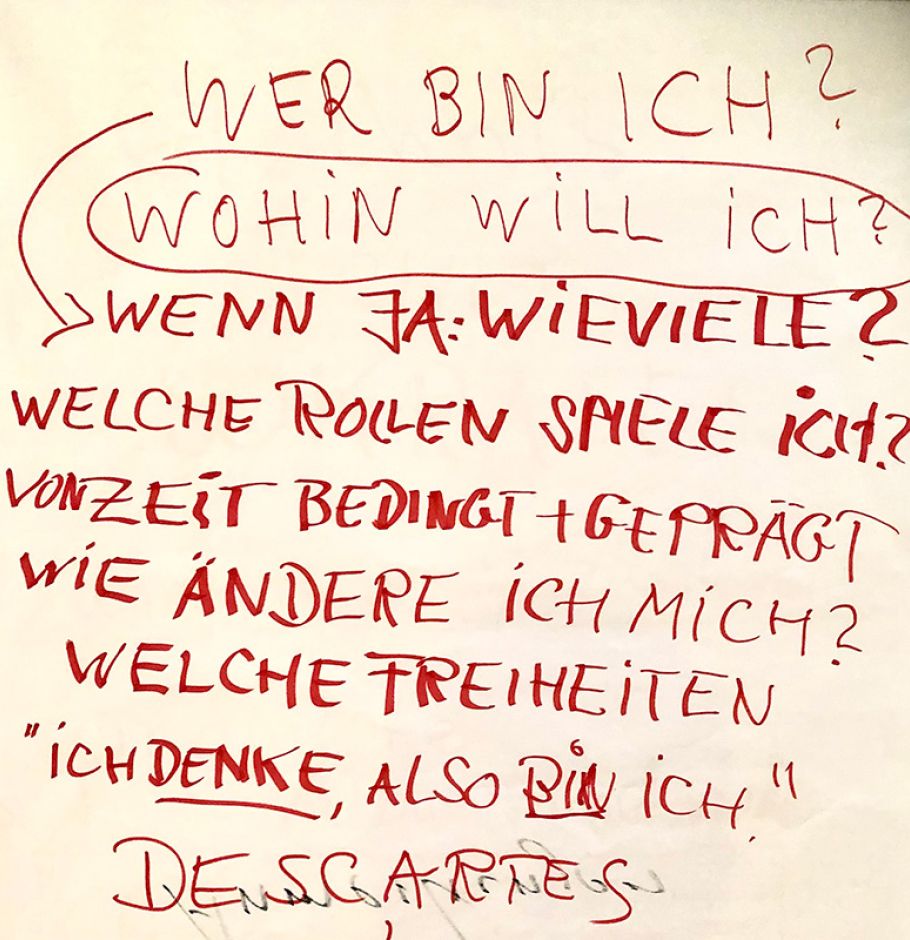 WER BIN ICH?
WOHIN WILL ICH?
WENN JA: WIEVIELE?
WELCHE ROLLEN SPIELE ICH?
VON ZEIT BEDINGT + GEPRÄGT
WIE ÄNDERE ICH MICH?
WELCHE FREIHEITEN
"ICH DENKE, ALSO BIN ICH."
DESCARTES